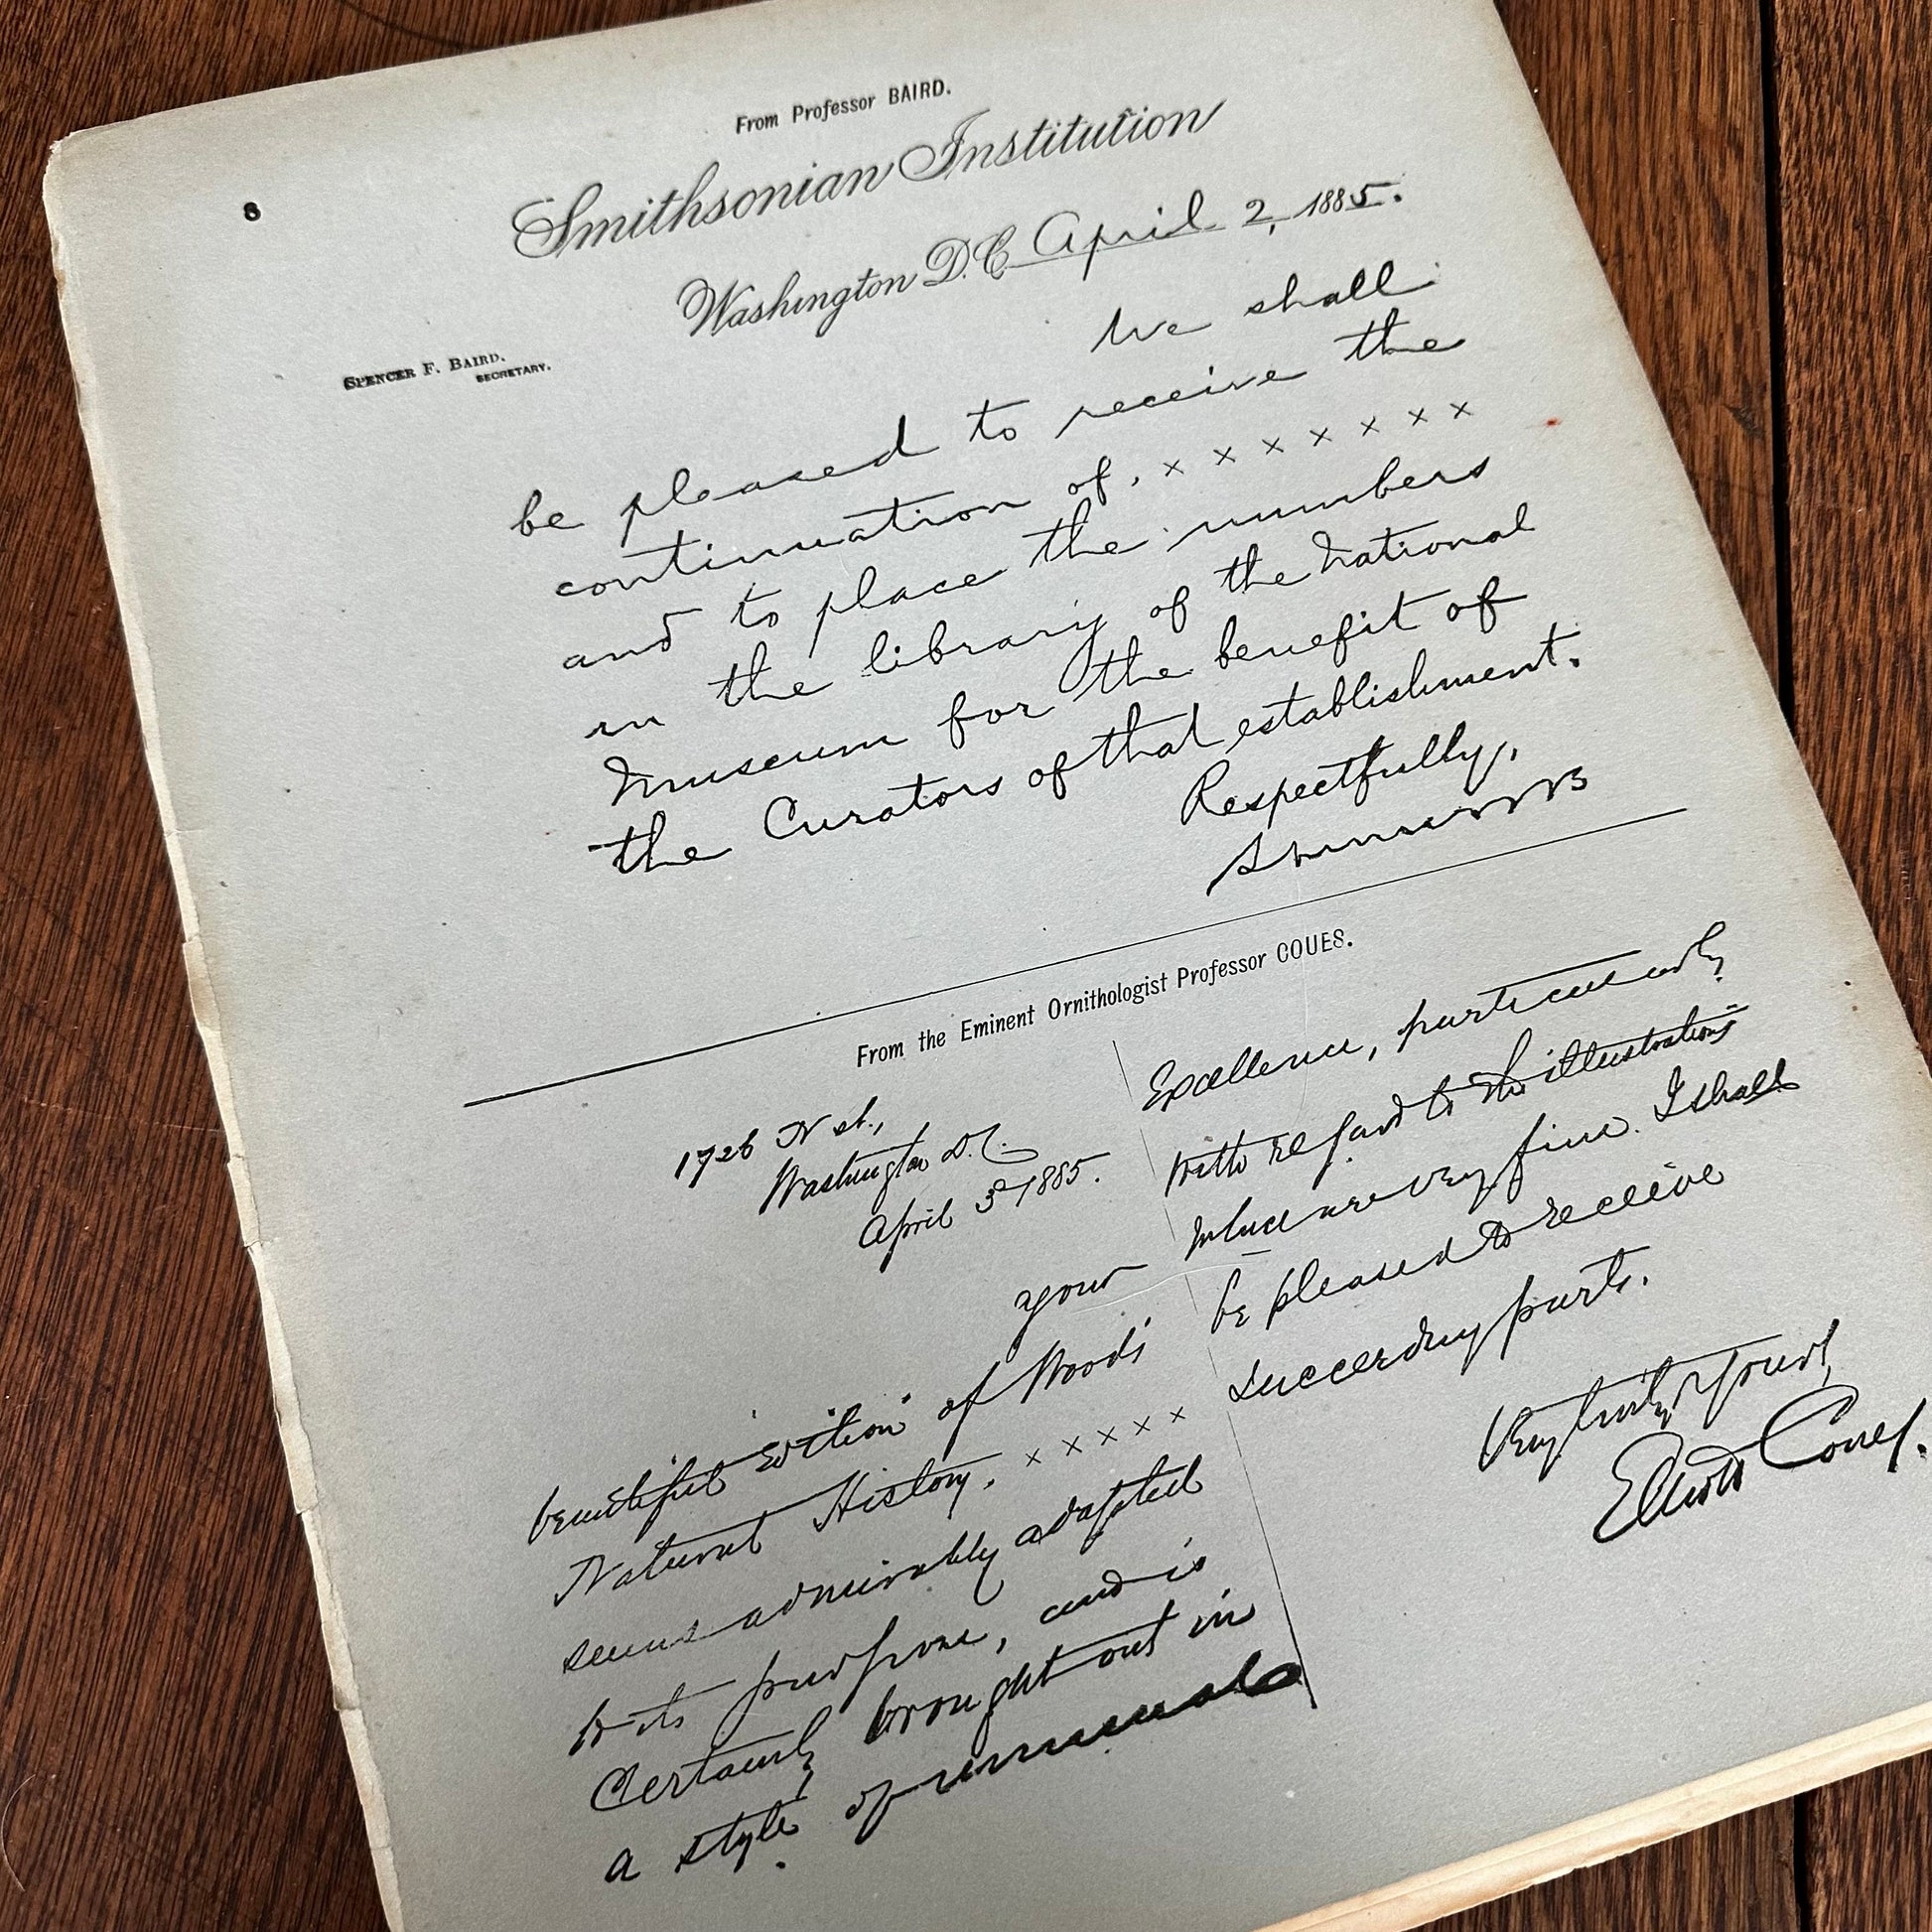 8
From Professor BAIRD.
Smithsonian Institution
Washington D.C. April 2, 1885.
SPENCER F. BAIRD.
SECRETARY.
We shall
be pleased to receive the
continuation of, × × × × × × ×
and to place the numbers
in the library of the National
Museum for the benefit of
the Curators of that establishment.
Respectfully,
From the Eminent Ornithologist Professor COUES.
1726 N st.,
Washington D.C.
April 3d 1885.
your
beautiful edition of Wood's
Natural History. × × × × ×
seems admirably adapted
to its purpose, and is
Certainly brought out in
a style of unusual
Excellence, particularly
with regard to the illustrations
which are very fine. I shall
be pleased to receive
succeeding parts.
Very truly yours,
Elliott Coues.